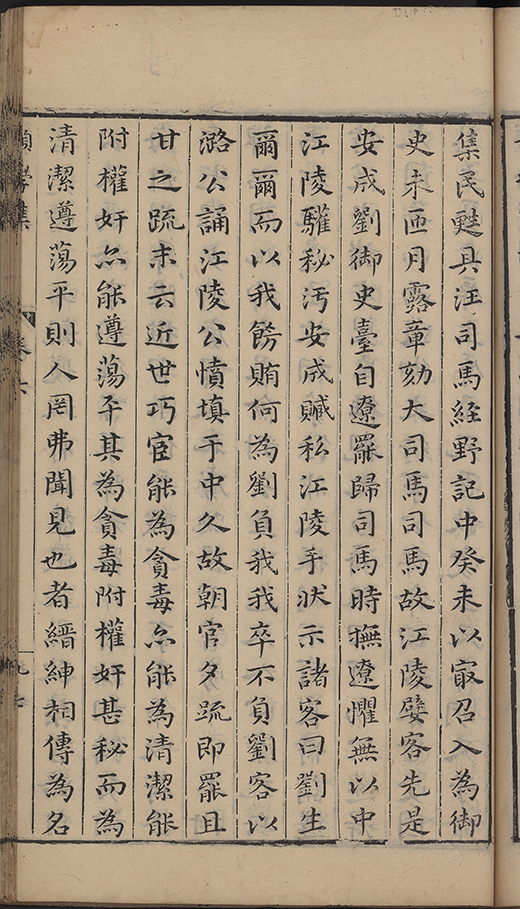 集民甦具汪司馬經野記中癸未以㝡召入為御
史未匝月露章劾大司馬司馬故江陵嬖客先是
安成劉御史臺自遼罷歸司馬時撫遼懼無以中
江陵驩秘汚安成贓私江陵手狀示諸客曰劉生
爾爾而以我餝賄何為劉負我我卒不負劉客以
潞公誦江陵公憤填于中久故朝官夕疏即罷且
甘之疏末云近世巧宦能為貪毒尒能為清潔能
附權奸尒能遵蕩平其為貪毒附權奸甚秘而為
清潔遵蕩平則人罔弗聞見也者縉紳相傳為名
集 卷六